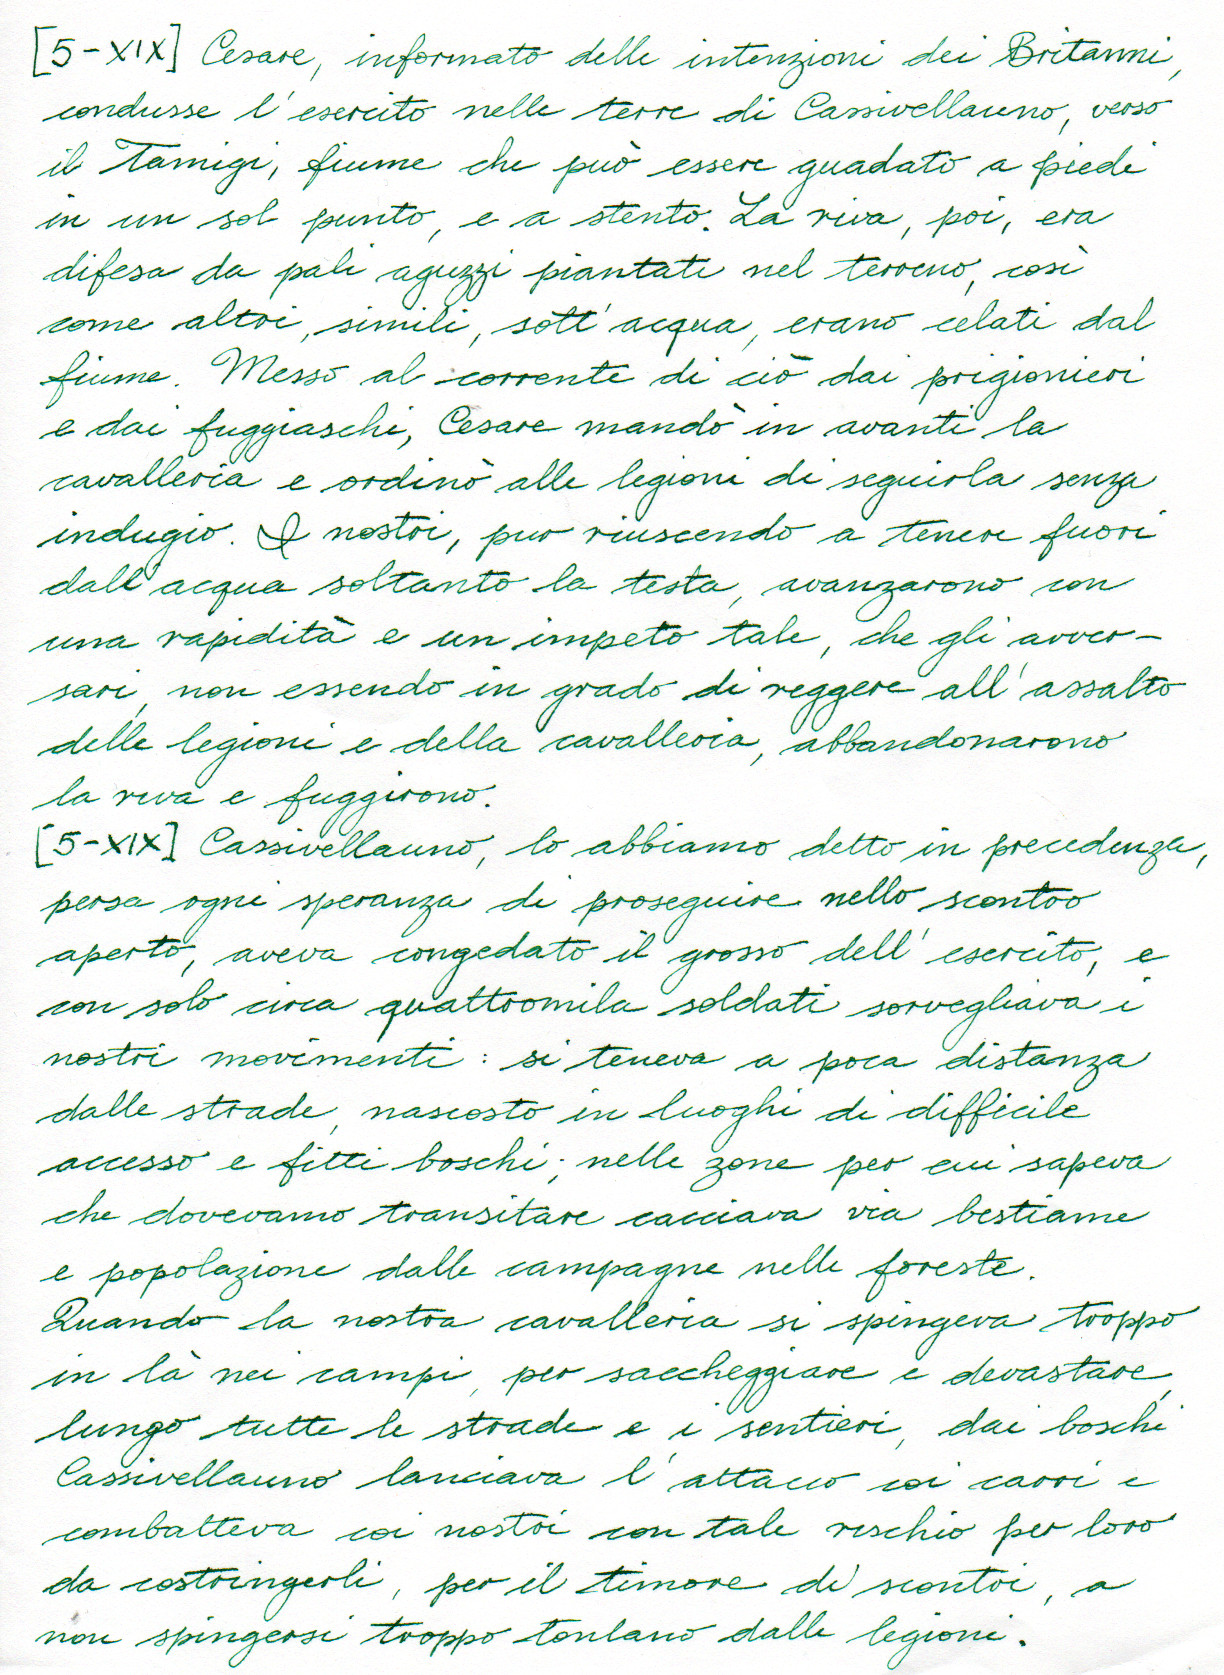 [5-XIX] Cesare, informato delle intenzioni dei Britanni,
condusse l'esercito nelle terre di Cassivellauno, verso
il Tamigi, fiume che può essere guadato a piedi
in un sol punto, e a stento. La riva, poi, era
difesa da pali aguzzi piantati nel terreno, così
come altri, simili, sott'acqua, erano celati dal
fiume. Messo al corrente di ciò dai prigionieri
e dai fuggiaschi, Cesare mandò in avanti la
cavalleria e ordinò alle legioni di seguirla senza
indugio. I nostri, pur riuscendo a tenere fuori
dall'acqua soltanto la testa, avanzarono con
una rapidità e un impeto tale, che gli avver-
sari, non essendo in grado di reggere all'assalto
delle legioni e della cavalleria, abbandonarono
la riva e fuggirono.
[5-XIX] Cassivellauno, lo abbiamo detto in precedenza,
persa ogni speranza di proseguire nello scontro
aperto, aveva congedato il grosso dell'esercito, e
con solo circa quattromila soldati sorvegliava i
nostri movimenti: si teneva a poca distanza
dalle strade, nascosto in luoghi di difficile
accesso e fitti boschi; nelle zone per cui sapeva
che dovevamo transitare cacciava via bestiame
e popolazione dalle campagne nelle foreste.
Quando la nostra cavalleria si spingeva troppo
in là nei campi, per saccheggiare e devastare,
lungo tutte le strade e i sentieri, dai boschi
Cassivellauno lanciava l'attacco coi carri e
combatteva coi nostri con tale rischio per loro
da costringerli, per il timore di scontri, a
non spingersi troppo lontano dalle legioni.